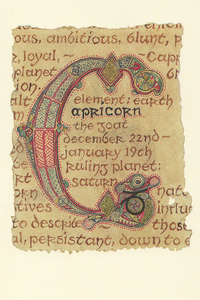 ous, ambitious, blunt, p
, loyal,
planet
element: earth
Capricorn
the goat
december 22nd-
january 19th
ruling planet:
saturn
natu
tives
influ
to describe
those
al, persistant, down to e